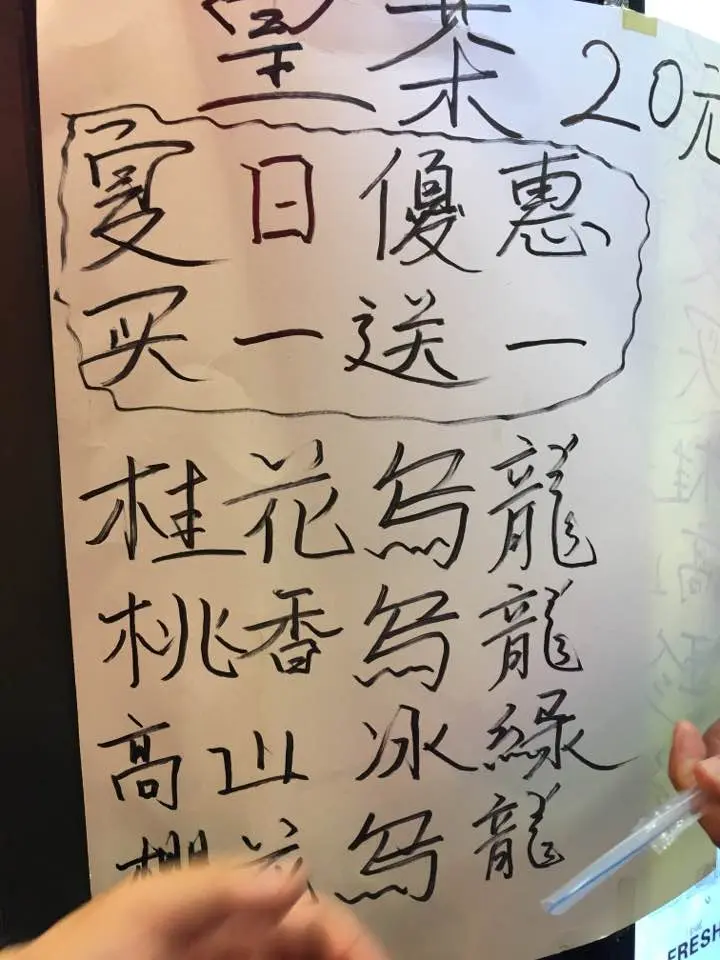 皇茶 20元
夏日優惠
买一送一
桂花烏龍
桃香烏龍
高山冰綠
花烏龍
FRESH